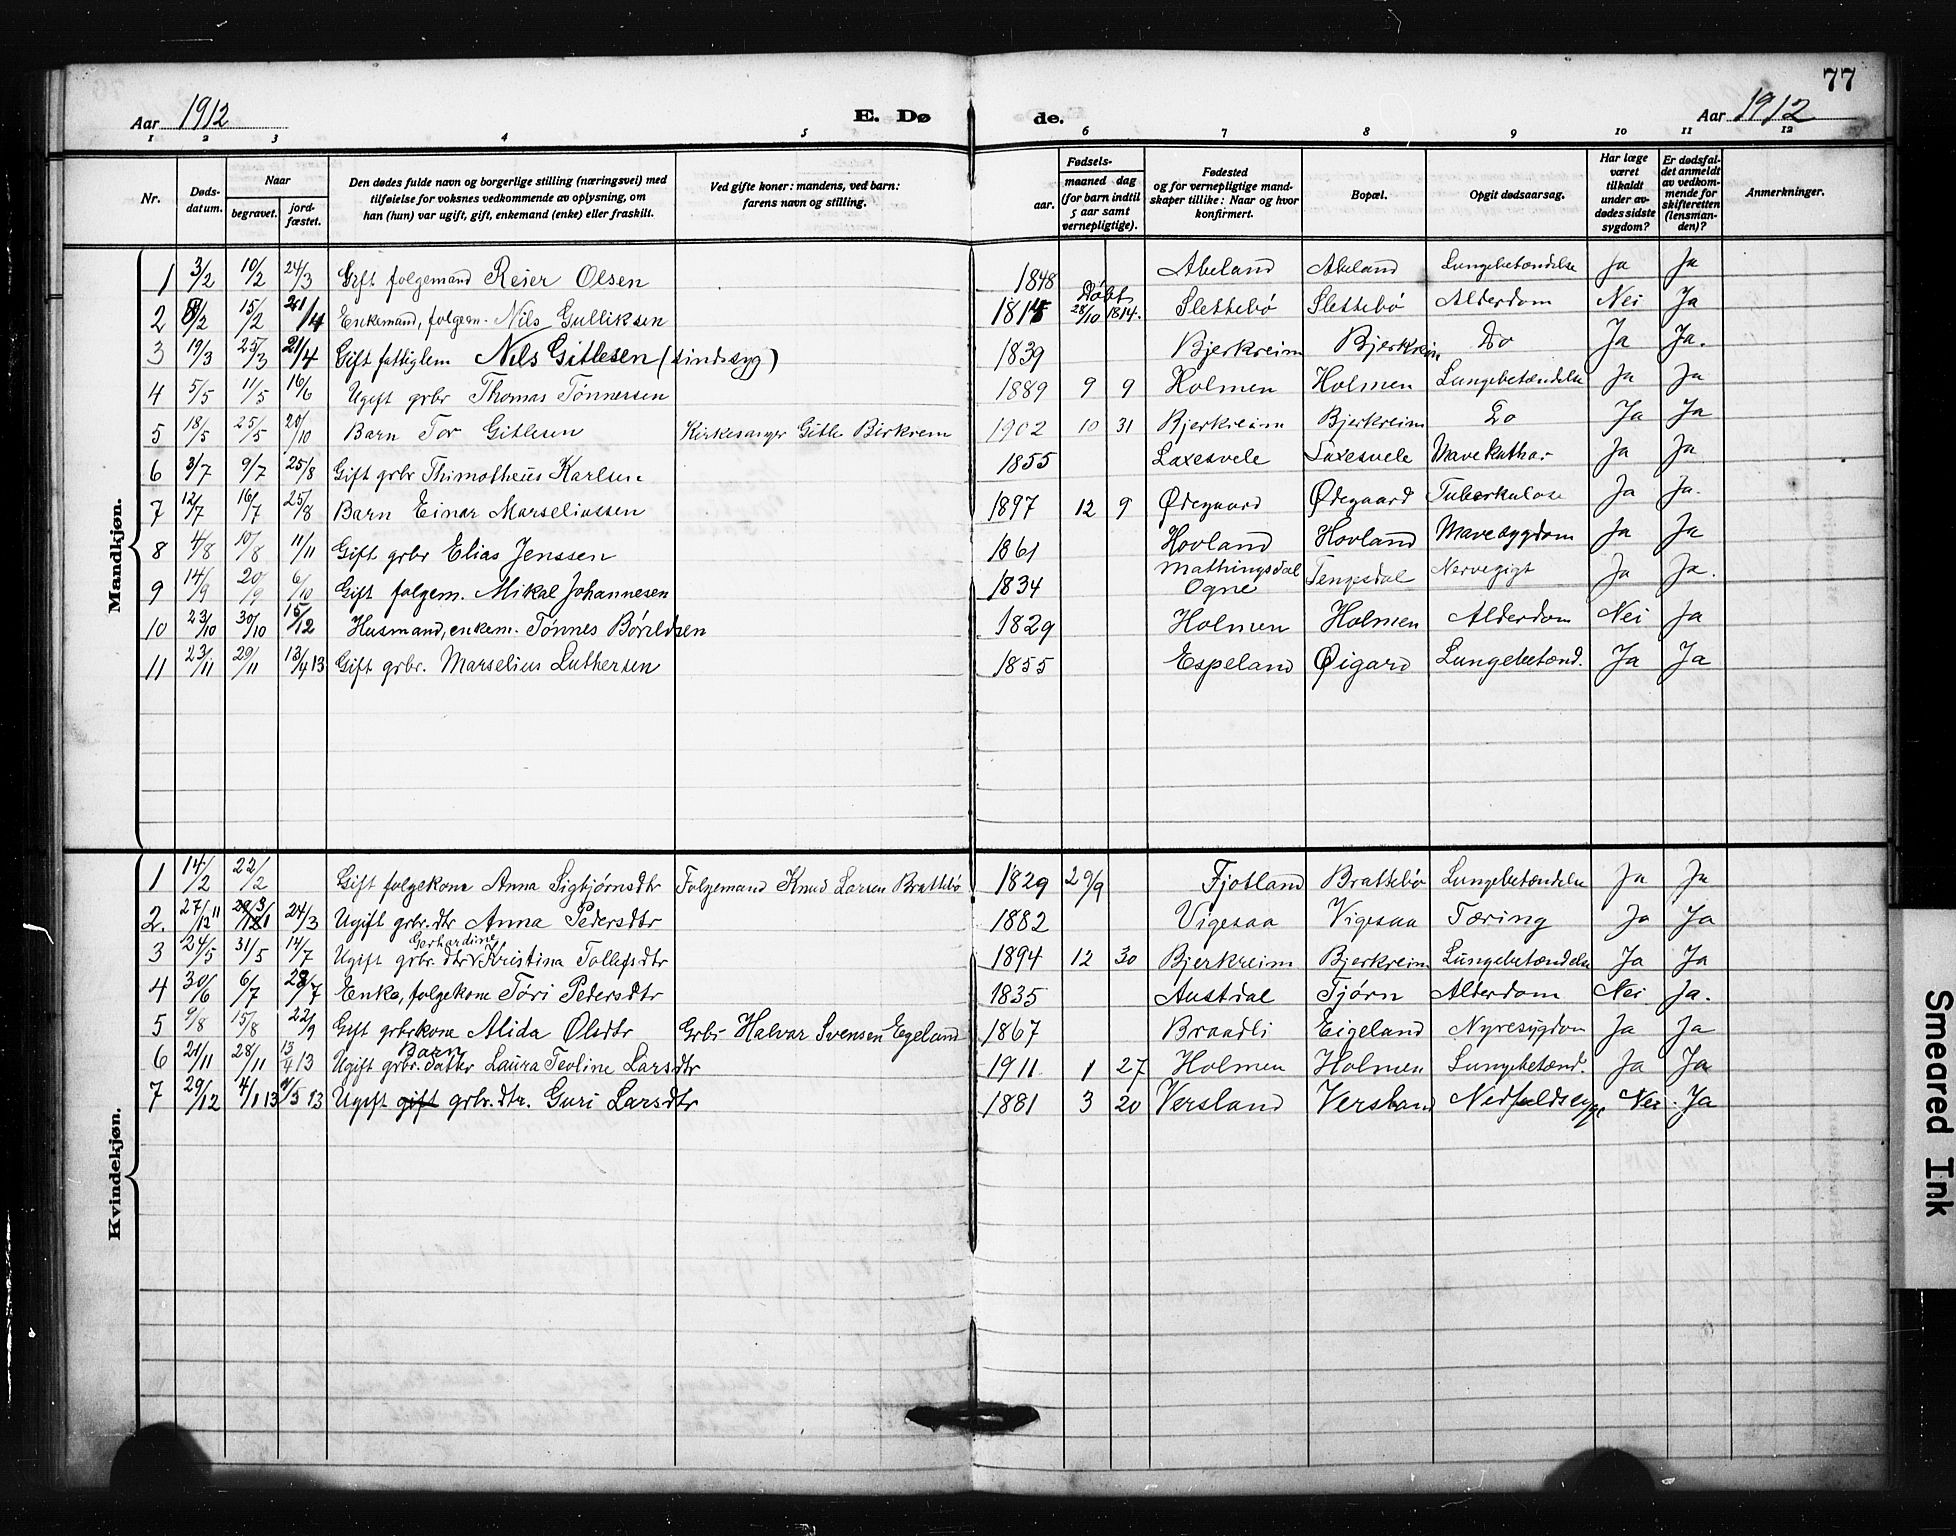 77
Aar 1912 E. Dø de. Aar 1912
1 2 3 4 5 6 7 8 9 10 11 12
Nr. Døds-datum. Naar begravet. jord-fæstet. Den dødes fulde navn og borgerlige stilling (næringsvei) med tilføielse for voksnes vedkommende av oplysning, om han (hun) var ugift, gift, enkemand (enke) eller fraskilt. Ved gifte koner: mandens, ved barn: farens navn og stilling. Fødsels- aar. maaned dag (for barn indtil 5 aar samt vernepligtige). Fødested og for vernepligtige mand-skaper tillike: Naar og hvor konfirmert. Bopæl. Opgit dødsaarsag. Har læge været tilkaldt under av-dødes sidste sygdom? Er dødsfal-det anmeldt av vedkom-mende for skifteretten (lensman-den)? Anmerkninger.
Mandkjøn.
1 3/2 10/2 24/3 Gift folgemand Reier Olsen 1848 Abeland Abeland Lungebetændelse Ja Ja
2 8/2 15/2 21/4 Enkemand, folgem. Nils Gulliksen 1814 Døbt 28/10 1814. Slettebö Slettebö Alderdom Nei Ja
3 19/3 25/3 21/4 Gift fattiglem Nils Gitlesen (sindssyg) 1839 Bjerkreim Bjerkreim Do Ja Ja.
4 5/5 11/5 16/6 Ugift grbr Thomas Tønnessen 1889 9 9 Holmen Holmen Lungebetændelse Ja Ja
5 18/5 25/5 20/10 Barn Tor Gitlesen Kirkesanger Gitle Birkrem 1902 10 31 Bjerkreim Bjerkreim Do Ja Ja
6 3/7 9/7 25/8 Gift grbr Thimotheus Karlsen 1855 Laxesvele Laxesvele Mavekathar Ja Ja
7 12/7 16/7 25/8 Barn Einar Marseliussen 1897 12 9 Ødegaard Ødegaard Tuberkulose Ja Ja.
8 4/8 10/8 11/11 Gift grbr Elias Jenssen 1861 Hovland Hovland Mavesygdom Ja Ja
9 14/9 20/9 6/10 Gift folgem. Mikal Johannesen 1834 Mathingsdal Ogne Tengesdal Nervegigt Ja Ja.
10 23/10 30/10 15/12 Husmand, enkem. Tønnes Børildsen 1829 Holmen Holmen Alderdom Nei Ja
11 23/11 29/11 13/4 13 Gift grbr. Marselius Luthersen 1855 Espeland Øigard Lungebetænd. Ja Ja
Kvindekjøn.
1 14/2 22/2 Gift folgekone Anna Sigbjørnsdtr Folgemand Knud Larsen Brattebø 1829 29/9 Fjotland Brattebö Lungebetændelse Ja Ja
2. 27/12 11 3/1 24/3 Ugift grbr.dtr Anna Pedersdtr 1882 Vigesaa Vigesaa Tæring Ja Ja
3 24/5 31/5 14/7 Ugift grbr. dtr Gerhardine Kristina Tollefsdtr 1894 12 30 Bjerkreim Bjerkreim Lungebetændelse Ja Ja
4 30/6 6/7 28/7 Enke, folgekone Tøri Pedersdtr 1835 Austdal Tjørn Alderdom Nei Ja.
5 9/8 15/8 22/9 Gift grbrkone Alida Olsdtr Grbr Halvar Svensen Egeland 1867 Braadli Eigeland Nyresygdom Ja Ja
6 21/11 28/11 13/4 13 Ugift grbr. datter Barn Laura Teoline Larsdtr 1911 1 27 Holmen Holmen Lungebetænd. Ja Ja
7 29/12 4/1 13 /5 13 Ugift gift grbr. dtr. Guri Larsdtr 1881 3 20 Versland Versland Nedfaldssyge Nei. Ja
Smeared Ink